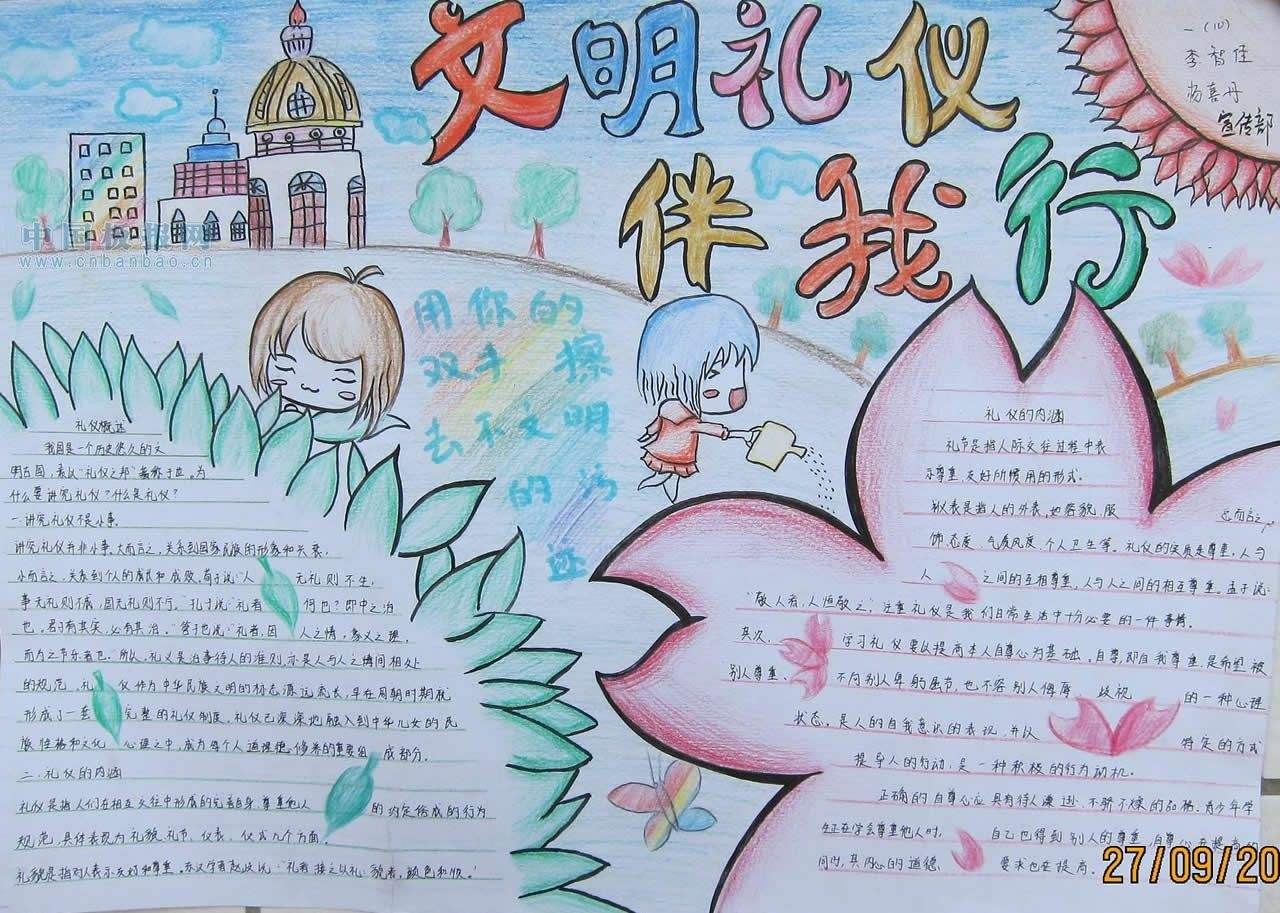 文明礼仪
伴我行
一(10)
李智佳
杨喜丹
宣传部
中国板报网
www.cnbanbao.cn
用你的
双手 擦
去不文明
的污
迹
礼仪概述
我国是一个历史悠久的文
明古国,素以"礼仪之邦"著称于世。为
什么要讲究礼仪?什么是礼仪?
一.讲究礼仪不是小事.
讲究礼仪并非小事,大而言之,关系到国家民族的形象和兴衰,
小而言之,关系到个人的 和成败,荀子说:"人 无礼则不生,
事无礼则不成,国无礼则不宁。"孔子说"礼者 何也?即事之治
也,君子有其事,必有其治。"管子也说:"礼者,因 人之情,缘义之理,
而为之节文者也.所以,礼仪是治事待人的准则,亦是人与人之情间相处
的规范。礼 仪作为中华民族文明的标志源远流长,早在周朝时期就
形成了一套 完整的礼仪制度.礼仪已深深地融入到中华儿女的民
族性格和文化 心理之中,成为每个人道理德修养的重要组 成部分.
二.礼仪的内涵
礼仪是指人们在相互交往中形成的完善自身 尊重他人 的约定俗成的行为
规范,具体表现为礼貌.礼节.仪表.仪式几个方面.
礼貌是指对人表示友好和尊重。 说:"礼者接之以礼 貌者,颜色和顺。"
礼仪的内涵
礼节是指人际交往过程中表
示尊重,友好所惯用的形式.
仪表是指人的外表,如容貌.服
饰.态度.气质风度.个人卫生等。礼仪的实质是尊重,人与
总而言之,
人 之间的互相尊重,人与人之间的相互尊重.孟子说:
"敬人者,人恒敬之",注重礼仪是我们日常生活中十分必要的一件事情.
其次, 学习礼仪要以提高本人自尊心为基础。自尊,即自我尊重,是希望被
别人尊重、 不向别人卑躬屈节,也不容别人侮辱 歧视 的一种心理
状态。是人的自我意识的表现,并以 特定的方式
提导人的行动,是一种积极的行为动机.
正确的自尊心应具有待人谦逊,不骄不燥的品格.青少年学
生正在学会尊重他人时, 自己也得到别人的尊重,自尊心在提高的
同时,其内心的道德. 要求也在提高.
27/09/20